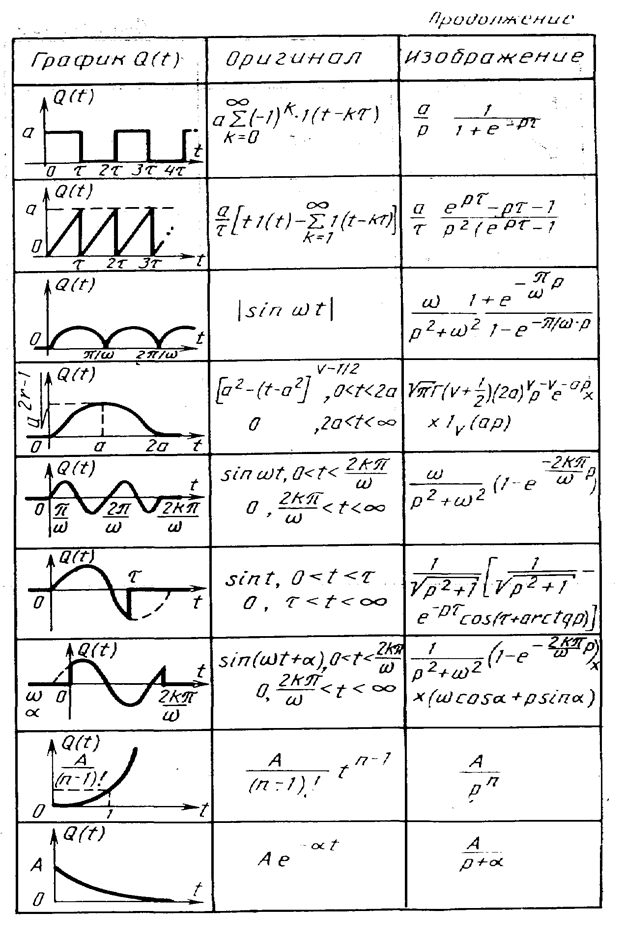 Продолжение
График Q(t) Оригинал Изображение
Q(t)
a
0 τ 2τ 3τ 4τ t
a ∑_{k=0}^{∞} (-1)^k · 1(t-kτ)
a/p 1/(1+e^{-pτ})
Q(t)
a
0 τ 2τ 3τ t
a/τ [t1(t)-∑_{k=1}^{∞} 1(t-kτ)]
a/τ (e^{pτ}-pτ-1)/(p^2(e^{pτ}-1)
Q(t)
0 π/ω 2π/ω t
|sin ωt|
ω/(p^2+ω^2) (1+e^{-π/ω p})/(1-e^{-π/ω·p})
a^{2r-1} Q(t)
0 a 2a t
[a^2-(t-a^2]^{ν-1/2}, 0<t<2a
0 , 2a<t<∞
√π Γ(ν+1/2)(2a)^ν p^{-ν} e^{-ap} ×
× 1_ν(ap)
Q(t)
0 π/ω 2π/ω 2kπ/ω t
sin ωt, 0<t<2kπ/ω
0, 2kπ/ω<t<∞
ω/(p^2+ω^2) (1-e^{-2kπ/ω p})
Q(t)
0 τ t
sin t, 0<t<τ
0, τ<t<∞
1/√(p^2+1) [1/√(p^2+1) -
e^{-pτ} cos(τ+arctgp)]
Q(t)
ω/α 0 2kπ/ω t
sin(ωt+α), 0<t<2kπ/ω
0, 2kπ/ω<t<∞
1/(p^2+ω^2) (1-e^{-2kπ/ω p}) ×
×(ω cosα+p sinα)
Q(t)
A/(n-1)!
0 1 t
A/(n-1)! t^{n-1}
A/p^n
Q(t)
A
0 t
A e^{-αt}
A/(p+α)